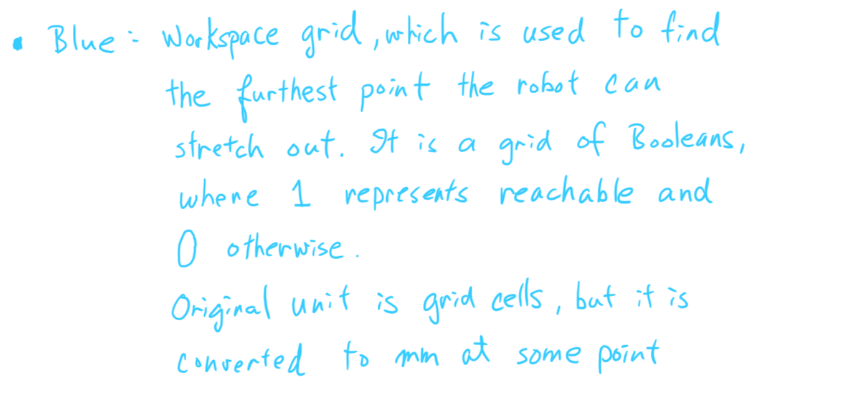 • Blue: Workspace grid, which is used to find
the furthest point the robot can
stretch out. It is a grid of Booleans,
where 1 represents reachable and
0 otherwise.
Original unit is grid cells, but it is
converted to mm at some point